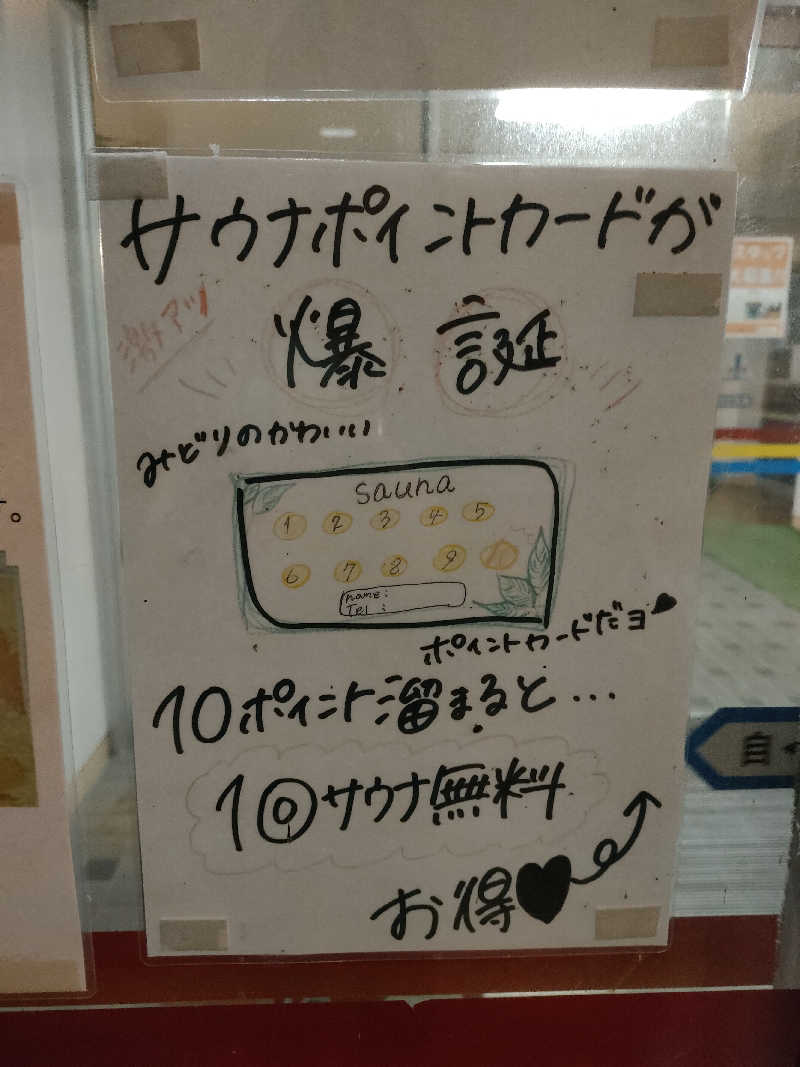 サウナポイントカードが
激アツ
爆誕
みどりのかわいい
sauna
1 2 3 4 5
6 7 8 9 10
name:
Tel :
ポイントカードだヨ
10ポイント溜まると...
1回サウナ無料
お得
す。
自